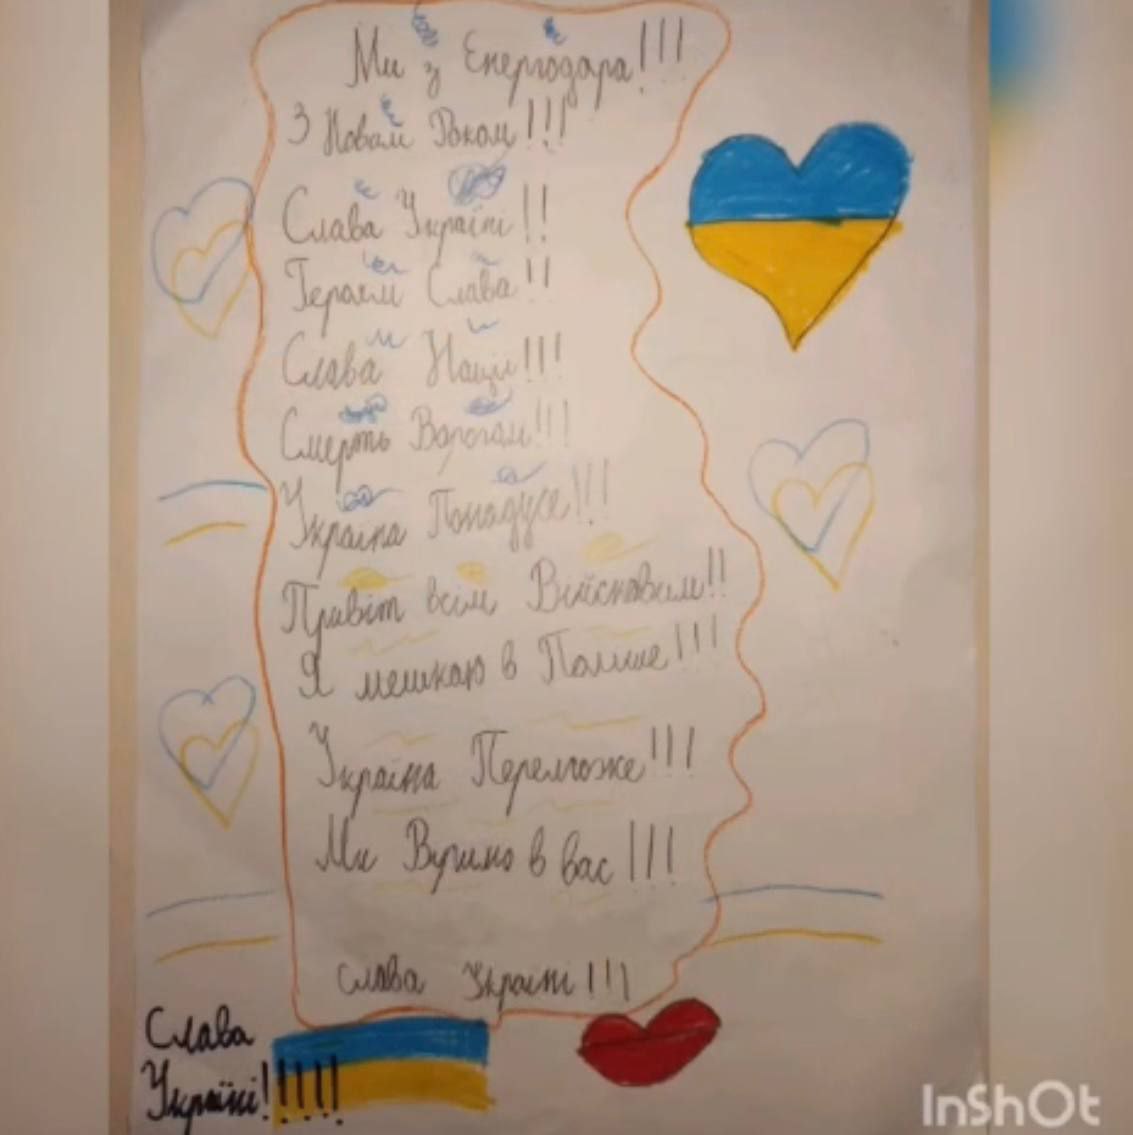 Ми з Енергодара!!!
З Новам Роком!!!
Слава Україні!!
Героям Слава!!
Слава Нації!!!
Смерть Ворогам!!!
Україна Понадусе!!!
Правіт всім Військовим!!
Я мешкаю в Польше!!!
Україна Переможе!!!
Ми Віримо в вас!!!
Слава Україні!!!
Слава
Україні!!!!!
InShOt